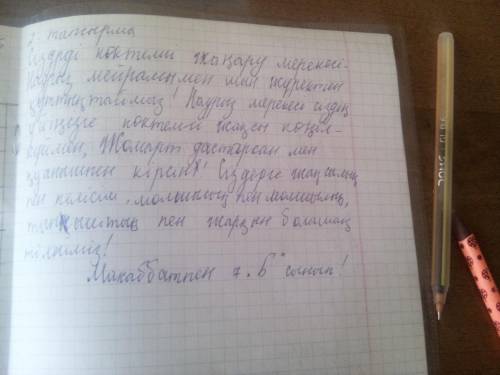 2. тапсырма
Сіздерді көктемгі жаңару мерекесі-
Наурыз мейрамымен шын жүректен
құттықтаймыз! Наурыз мерекесі сіздің
үйіңізге көктемгі жақсы көңіл-
күймен, жомарт дастархан мен
қуанышпен кірсін! Сіздерге жақсылық
пен келісім, молшылық пен
тыныштық пен жарқын болашақ
тілейміз!
Махаббатпен 7 "Б" сынып!